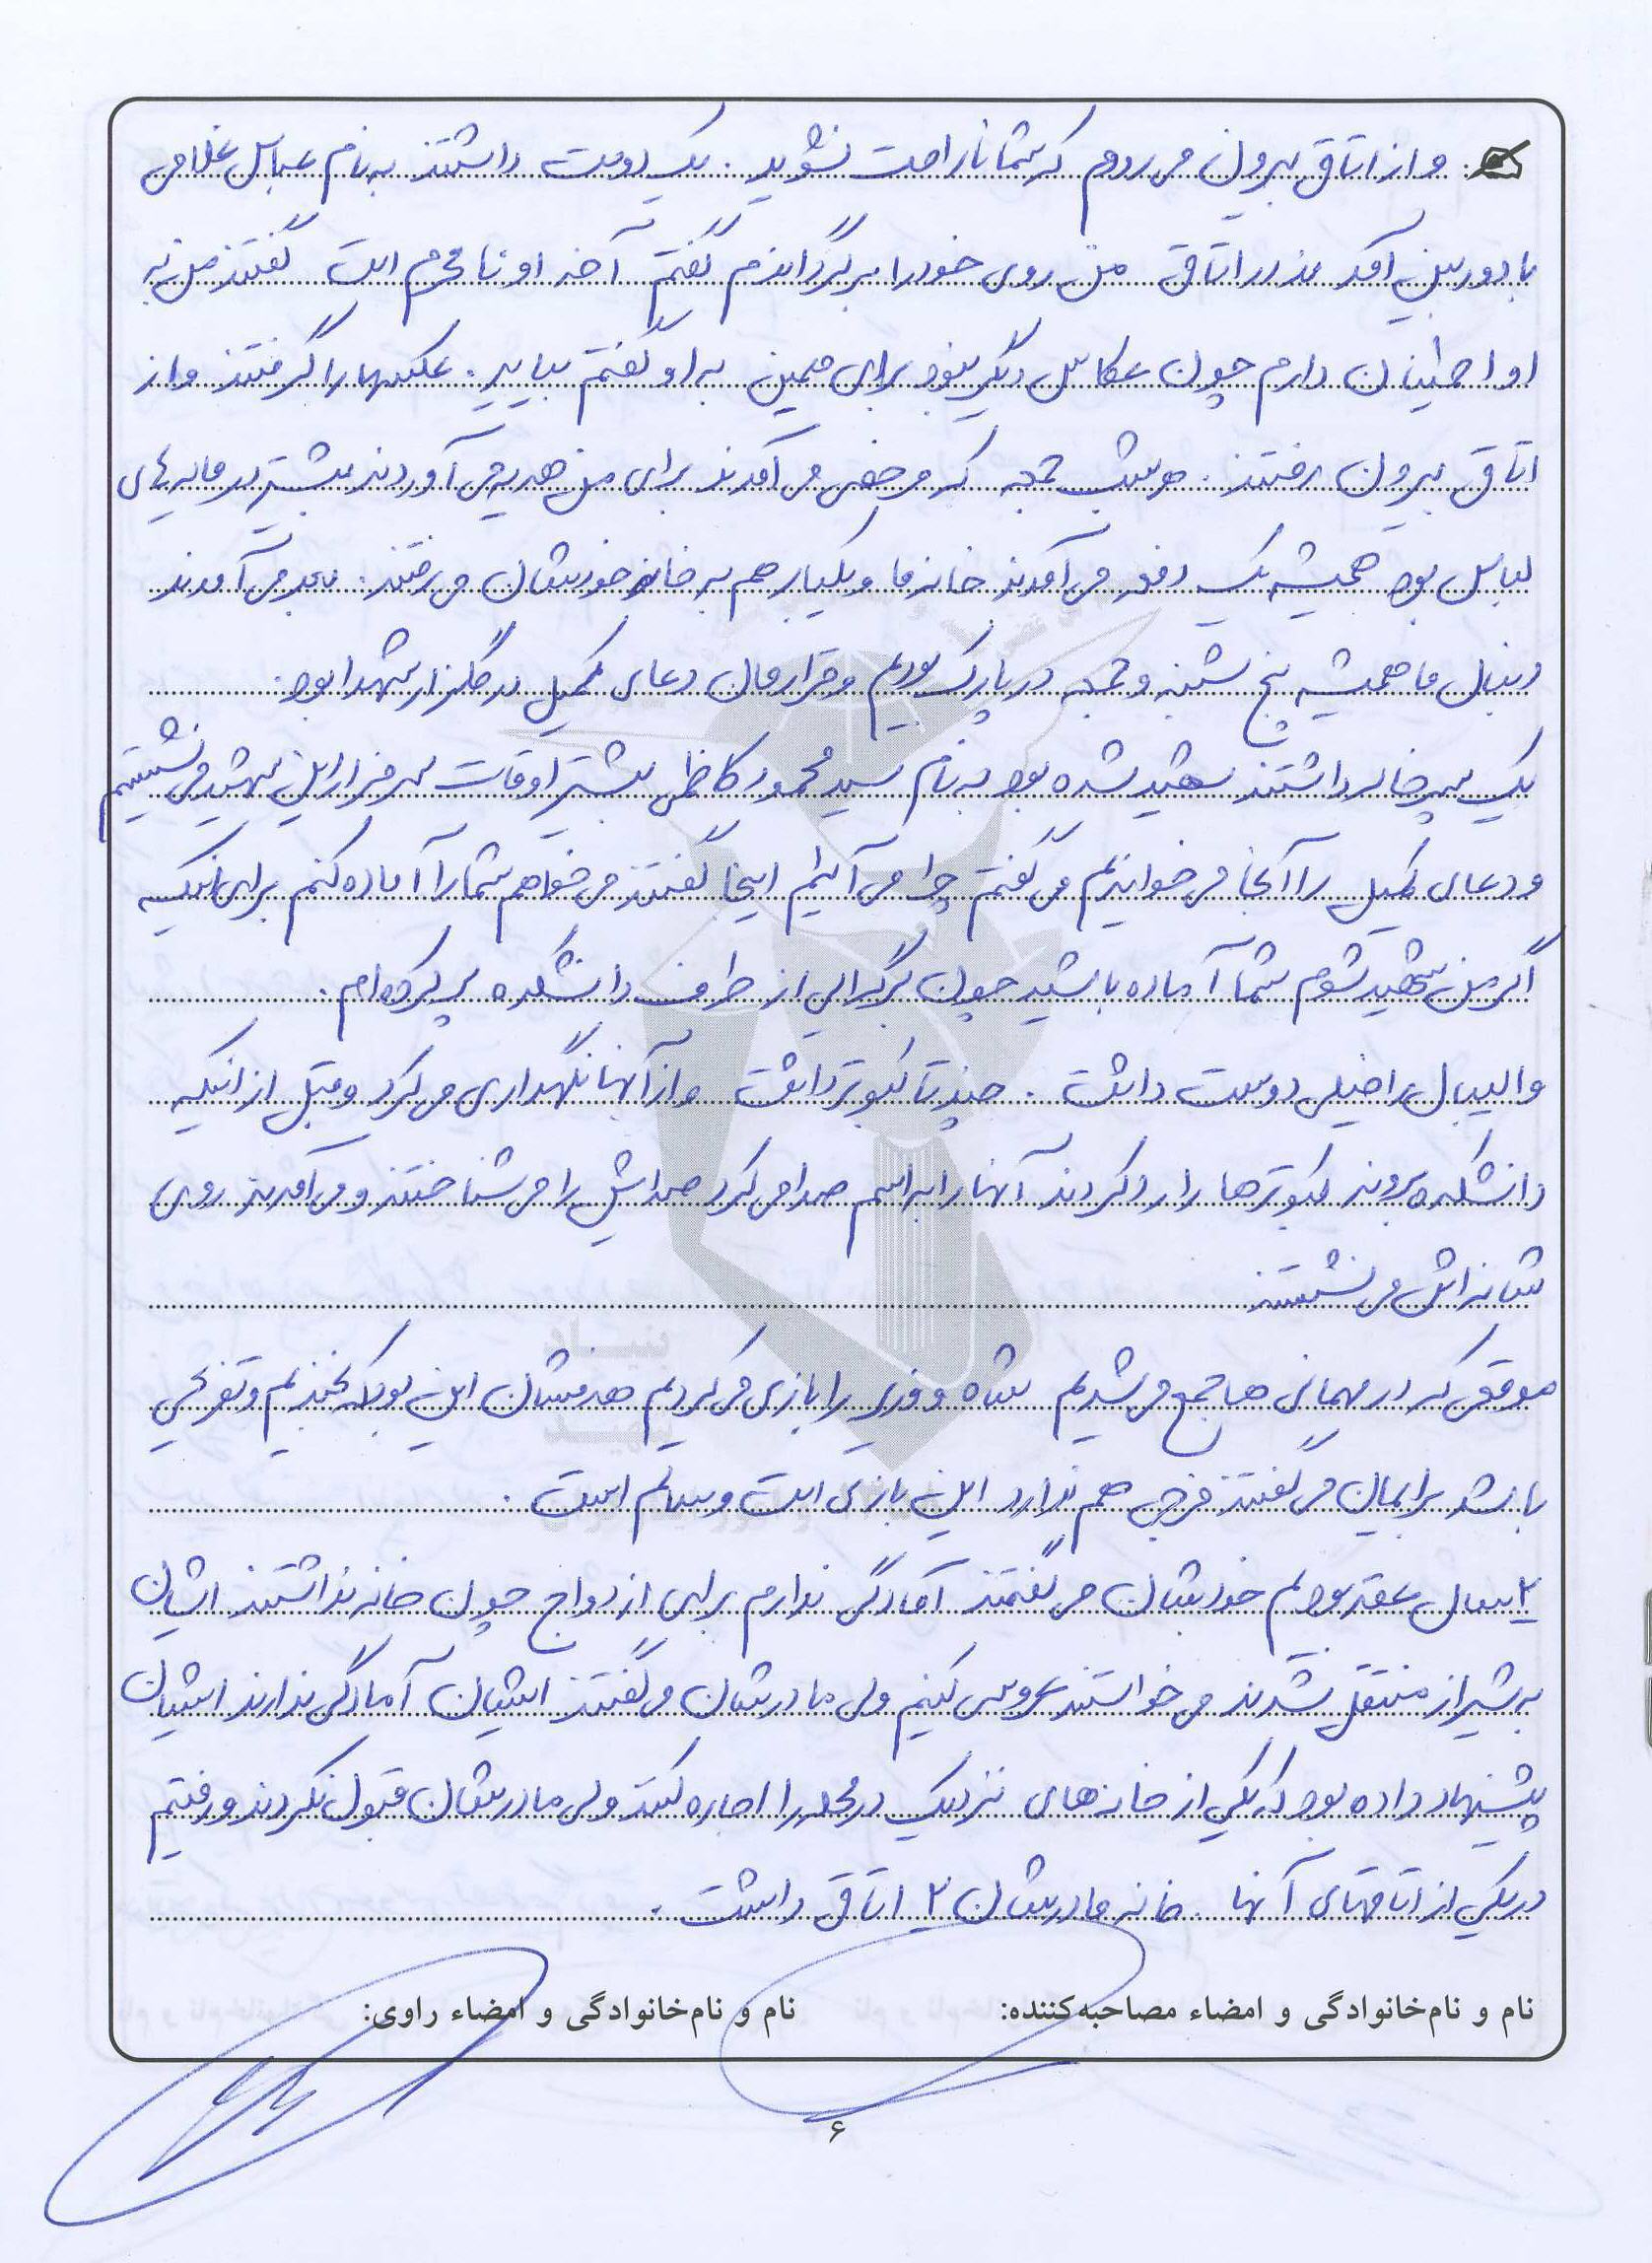 و از اتاق بیرون می روم که شما ناراحت نشوید. یک دوست داشتند به نام عباس غلامی
با دوربین آمدند در اتاق من روی خود را برگرداندم گفتم آخه او نامحرم است گفتند من به
او اطمینان دارم چون عکاس دیگر نبود برای همین به او گفتم بیاید. عکسها را گرفتند و از
اتاق بیرون رفتند. هر شب جمعه که مرخصی می آمدند برای من هدیه می آوردند بیشتر در مایه های
لباس بود همیشه یک دفعه می آمدند خانه ما و یکبار هم به خانه خودشان می رفتند. بعد می آمدند
دنبال ما همیشه پنج شنبه و جمعه در پارک بودیم و قرارمان دعای کمیل در گلزار شهدا بود.
یک پسر خاله داشتند شهید شده بود به نام سید محمود کاظمی بیشتر اوقات سر مزار این شهید می نشستیم
و دعای کمیل را آنجا می خواندیم می گفتم چرا می آئیم اینجا گفتند می خواهم شما را آماده کنم برای اینکه
اگر من شهید شوم شما آماده باشید چون برگه ای از طرف دانشکده پر کرده ام.
والیبال را خیلی دوست داشت. چند تا کبوتر داشت و از آنها نگهداری می کرد و قبل از اینکه
دانشکده بروند کبوترها را رد کردند آنها را به اسم صدا می کرد صدایش را می شناختند و می آمدند روی
شانه اش می نشستند
موقعی که در مهمانی ها جمع می شدیم شاه و وزیر را بازی می کردیم هدفشان این بود که بخندیم و تفریحی
باشد برایمان می گفتند فرقی هم ندارد این بازی است و سالم است.
۲ سال عقد بودیم خودشان می گفتند آمادگی ندارم برای ازدواج چون خانه نداشتند ایشان
به شیراز منتقل شدند می خواستند عروسی کنیم ولی مادرشان می گفتند ایشان آمادگی ندارند ایشان
پیشنهاد داده بود که یکی از خانه های نزدیک در محله را اجاره کنند ولی مادرشان قبول نکردند و رفتیم
در یکی از اتاقهای آنها خانه مادرشان ۲ اتاق داشت.
نام و نام‌خانوادگی و امضاء مصاحبه‌کننده: نام و نام‌خانوادگی و امضاء راوی:
۶